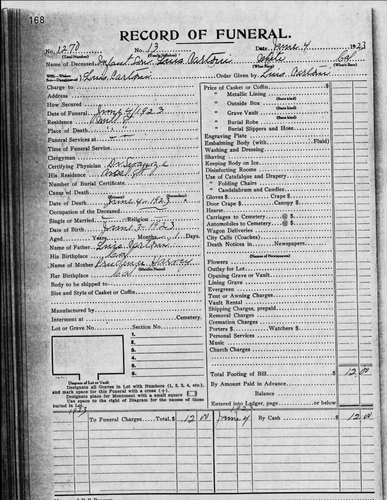 168
RECORD OF FUNERAL.
No. 1270 (Total Number) No. 13 (Yearly Number) Date June 4 1923
Name of Deceased Infant Son Luis White Ca
(What Race) (Where Born)
Order Given by Luis
Charge to
Address
How Secured
Date of Funeral June 4 1923
Residence
Place of Death
Funeral Services at
Time of Funeral Service
Clergyman
Certifying Physician Dr.
His Residence
Number of Burial Certificate
Cause of Death
Date of Death June 4 1923
Occupation of the Deceased
Single or Married Religion
Date of Birth June 3 1923
Aged Years Months 1 Days
Name of Father
His Birthplace Cal
Name of Mother Harvey
Her Birthplace Cal
Body to be shipped to
Size and Style of Casket or Coffin
Manufactured by
Interment at Cemetery.
Lot or Grave No. Section No.
1.
2.
3.
4.
5.
6.
Diagram of Lot or Vault
Designate all Graves in Lot with Numbers (1, 2, 3, 4, etc.), and mark space for this Funeral with a cross (+).
Designate place for Monument with a small square
Use space to the right of Diagram for the names of those buried in Lot.
Price of Casket or Coffin
" Metallic Lining
" Outside Box
" Grave Vault
" Burial Robe
" Burial Slippers and Hose
Engraving Plate
Embalming Body (with Fluid)
Washing and Dressing
Shaving
Keeping Body on Ice
Disinfecting Rooms
Use of Catafalque and Drapery
" Folding Chairs
" Candelabrum and Candles
Gloves $ Crape $
Door Crape $ Canopy $
Hearse
Carriages to Cemetery @ $
Automobiles to Cemetery @ $
Wagon Deliveries
City Calls (Coaches)
Death Notices in Newspapers
Flowers
Outlay for Lot
Opening Grave or Vault
Lining Grave
Evergreen
Tent or Awning
Vault Rental
Shipping Charges, prepaid
Removal Charges
Cremation Charges
Porters $ Watchers $
Personal Services
Music
Church Charges
Total Footing of Bill $ 12 00
By Amount Paid in Advance
Balance
Entered into Ledger, page or below.
1923 To Funeral Charges Total, $ 12 00
1923 June 4 By Cash $ 12 00